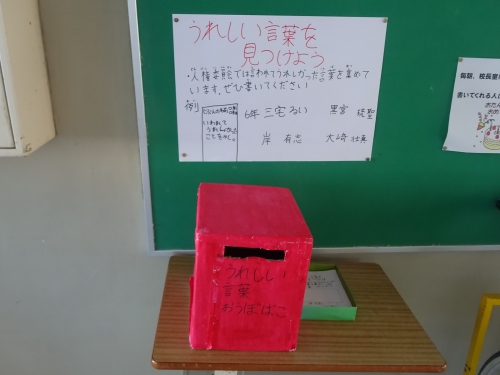 うれしい言葉を
見つけよう
・人権委員では言われてうれしかった言葉を集めて
います。ぜひ書いてください
例
いわれて
うれしかった
ことをかく。
6年 三宅 るい 黒宮 稜聖
岸 有志 大崎 壮真
毎朝、校長室
書いてくれる人
うれしい
言葉
おうぼばこ